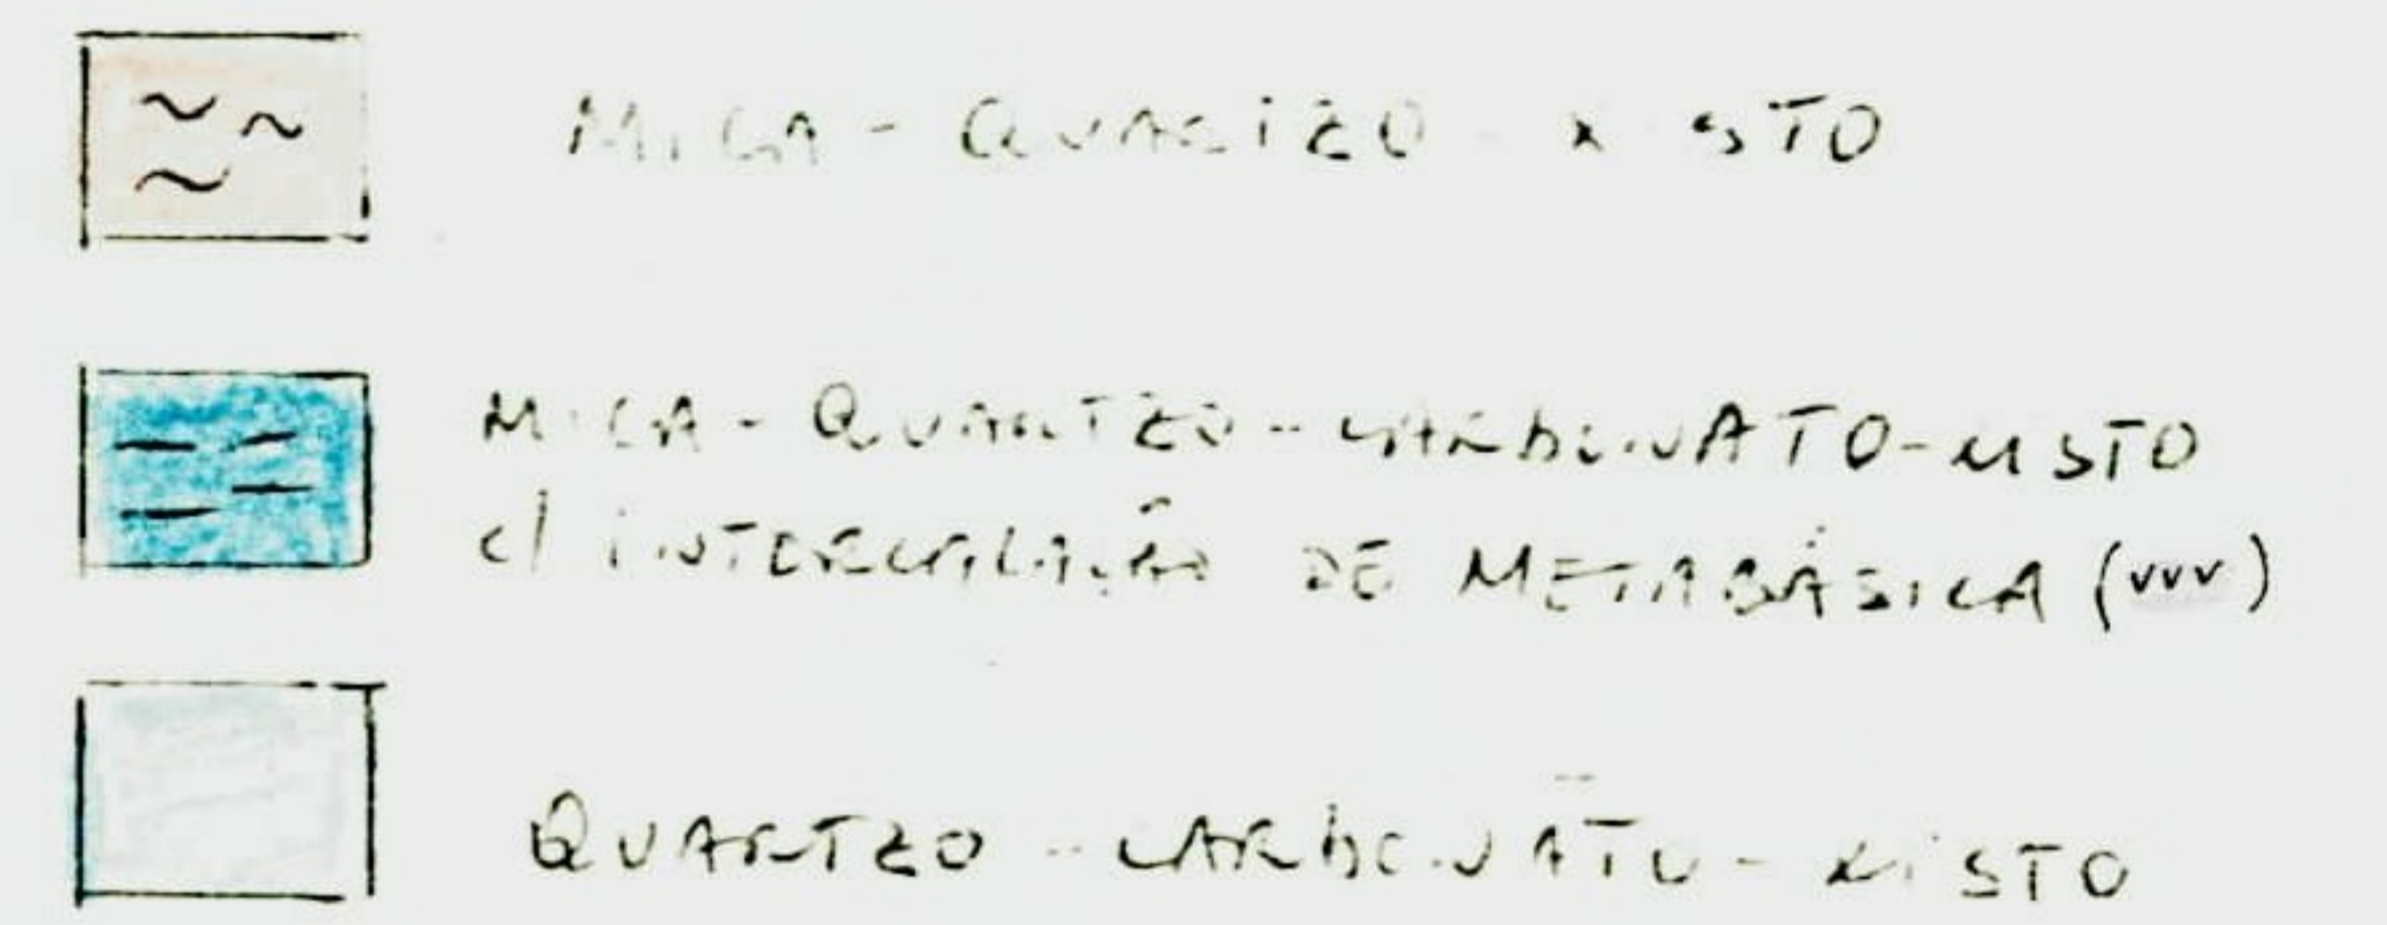 MICA - QUARTZO - XISTO
MICA - QUARTZO - CARBONATO - XISTO
c/ INTERCALAÇÃO DE METABÁSICA (vvv)
QUARTZO - CARBONATO - XISTO